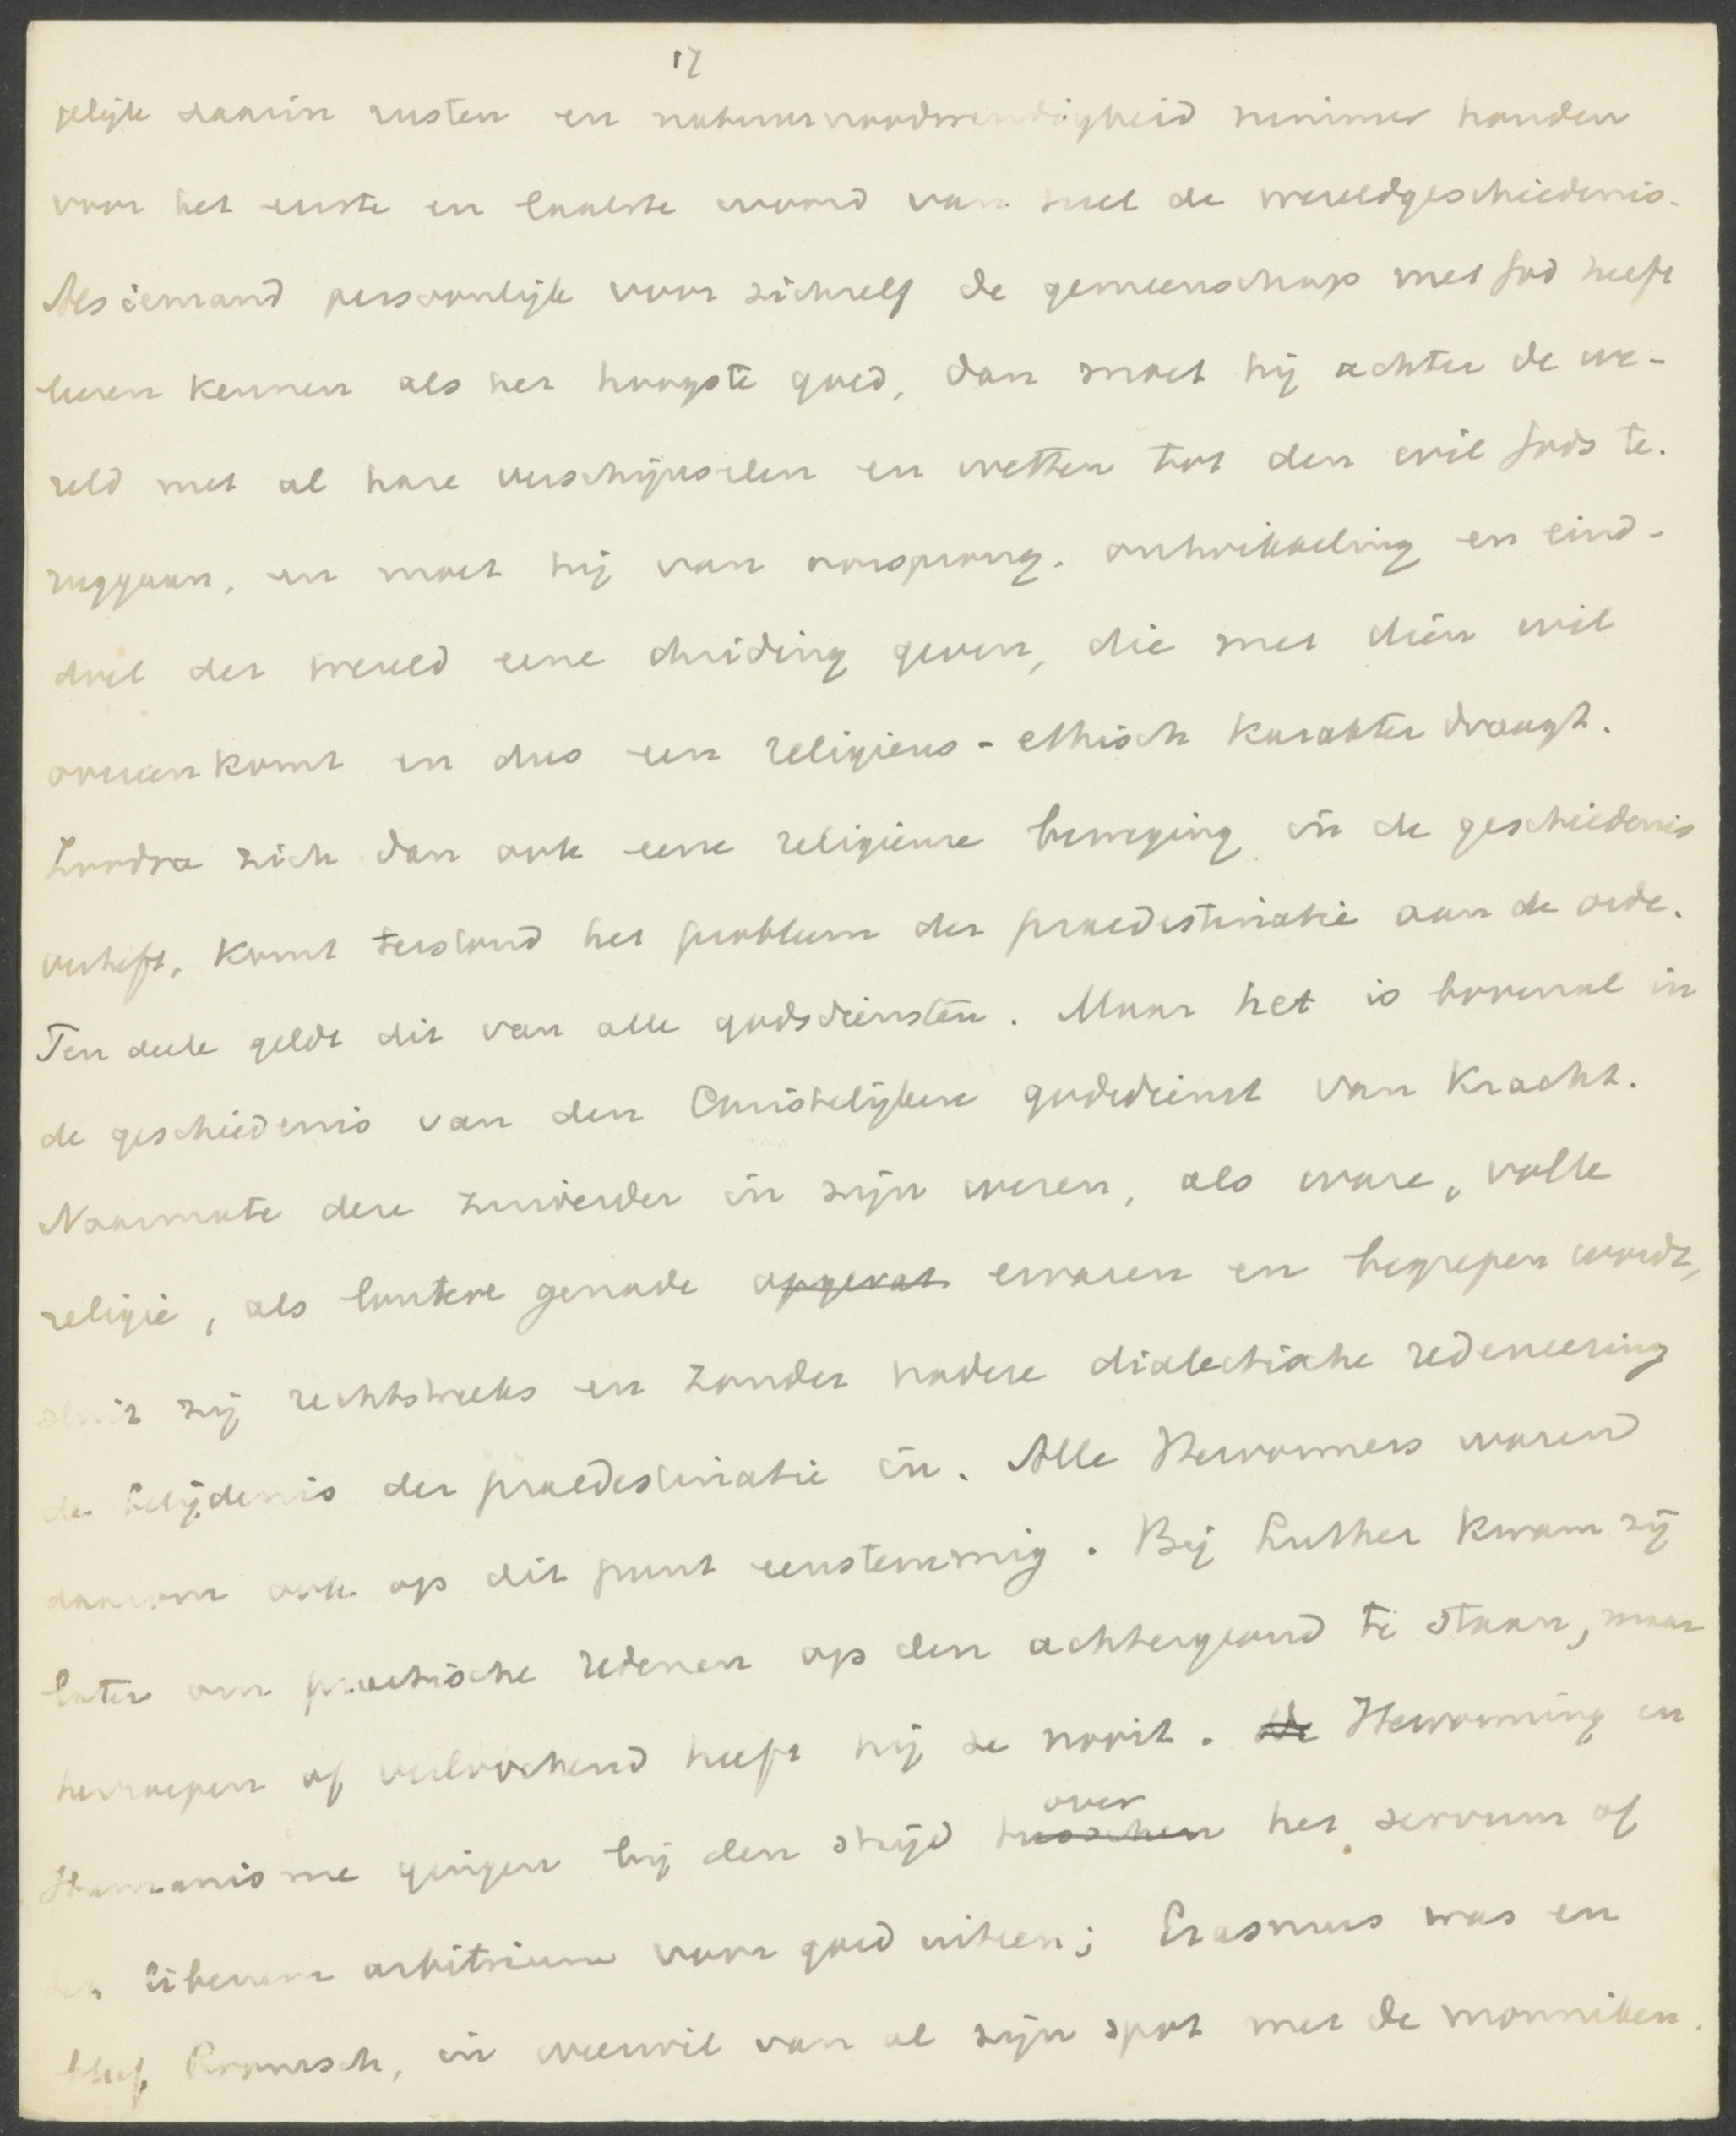 17
gelijk daarin rusten en natuurnoodwendigheid nimmer houden
voor het eerste en laatste woord van heel de wereldgeschiedenis.
Als iemand persoonlijk voor zichzelf de gemeenschap met God heeft
leeren kennen als het hoogste goed, dan moet hij achter de we-
reld met al hare verschijnselen en wetten tot den wil Gods te-
ruggaan, en moet hij van oorsprong, ontwikkeling en eind-
doel der wereld eene duiding geven, die met dien wil
overeenkomt en dus een religieus-ethisch karakter draagt.
Zoodra zich dan ook eene religieuse beweging in de geschiedenis
verheft, komt terstond het probleem der praedestinatie aan de orde.
Ten deele geldt dit van alle godsdiensten. Maar het is bovenal in
de geschiedenis van den Christelijken godsdienst van kracht.
Naarmate deze zuiverder in zijn wezen, als ware, volle
religie, als loutere genade opgevat ervaren en begrepen wordt,
sluit zij rechtstreeks en zonder nadere dialectische redeneering
de belijdenis der praedestinatie in. Alle Hervormers waren
daarom ook op dit punt eenstemmig. Bij Luther kwam zij
later om practische redenen op den achtergrond te staan, maar
herroepen of verloochend heeft hij ze nooit. de Hervorming en
over
Humanisme gingen bij den strijd tusschen het servum of
het liberum arbitrium voor goed uiteen; Erasmus was en
bleef Roomsch, in weerwil van al zijn spot met de monniken.